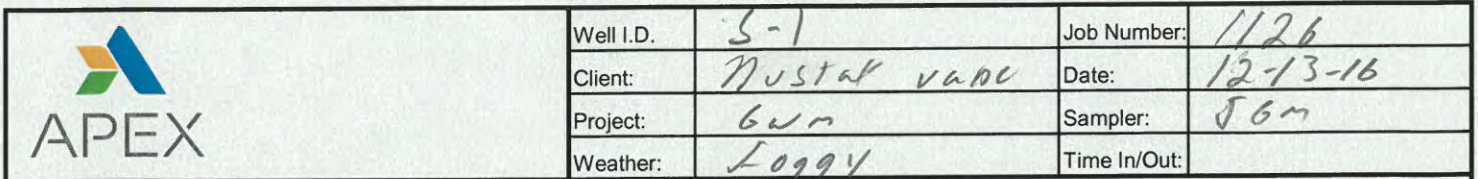 Well I.D. S-1 Job Number: 1126
Client: Nustar vanc Date: 12-13-16
Project: GWM Sampler: JGM
Weather: Foggy Time In/Out:
APEX